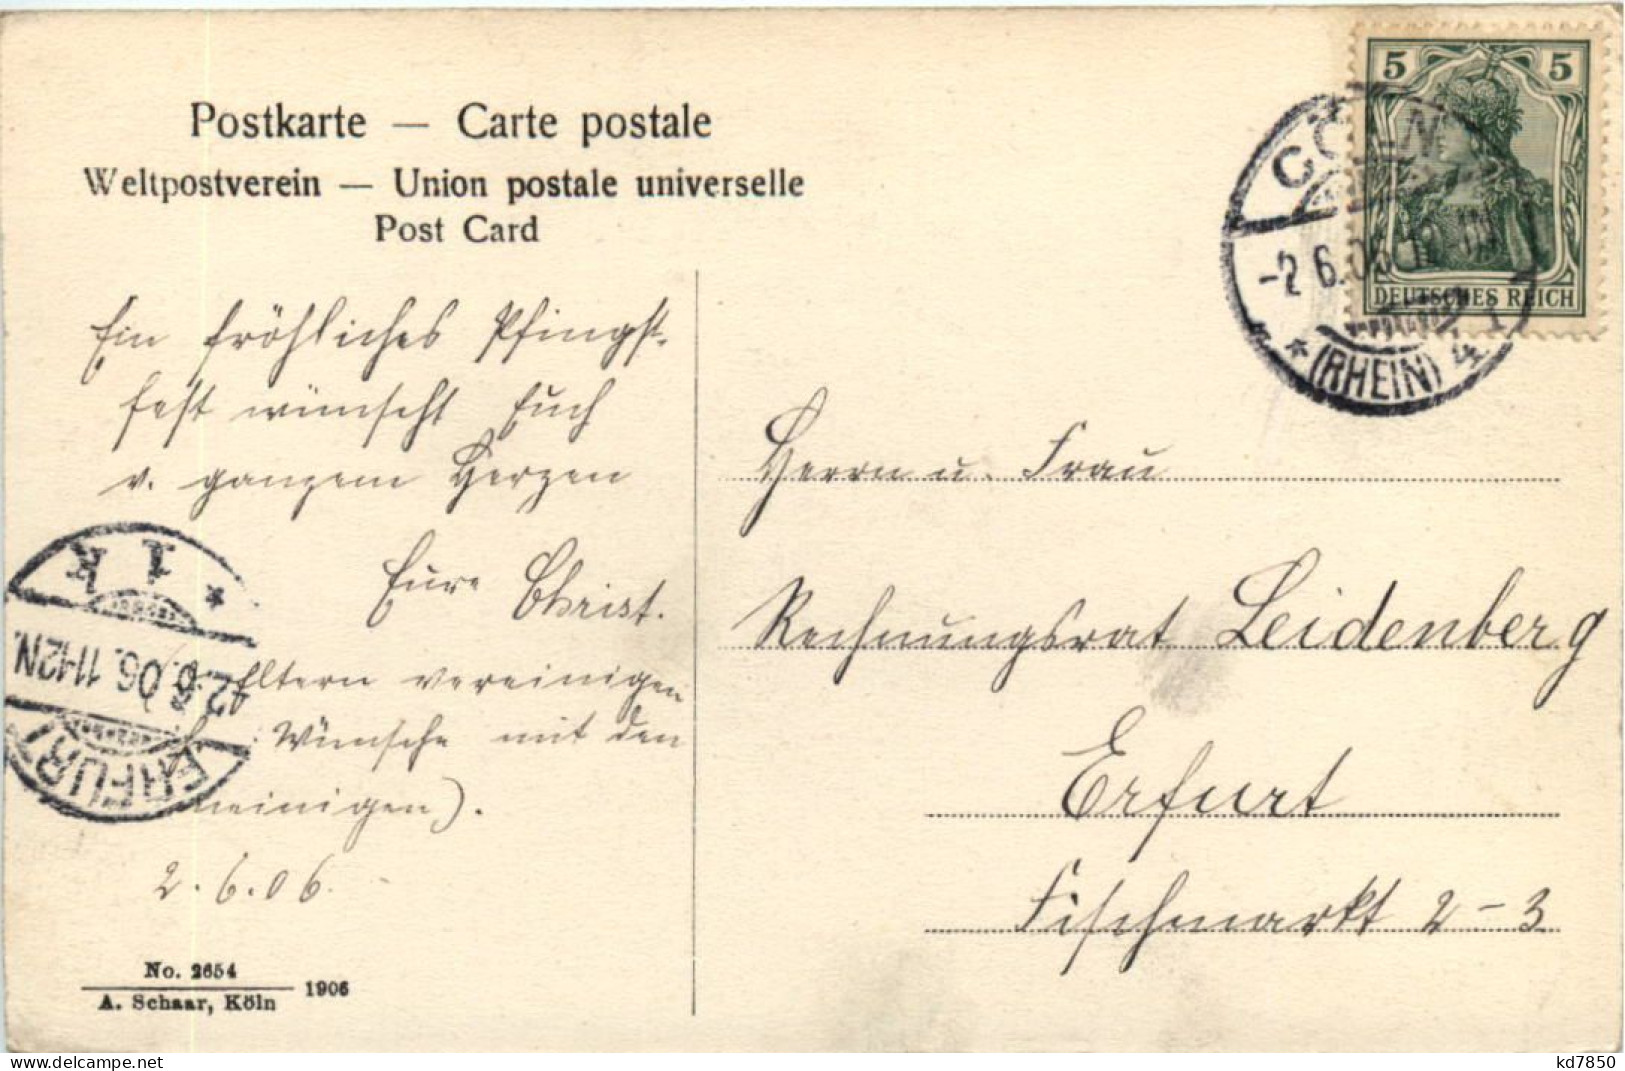 Postkarte — Carte postale
Weltpostverein — Union postale universelle
Post Card
Ein fröhliches Pfingst-
fest wünscht Euch
v. ganzem Herzen
Eure Christ.
Eltern vereinigen
Wünsche mit den
meinigen).
2.6.06.
No. 2654
A. Schaar, Köln
1906
5 5
DEUTSCHES REICH
CÖLN
-2.6.06
* (RHEIN) 4
Herrn u. Frau
Rechnungsrat Leidenberg
Erfurt
Fischmarkt 2-3
ERFURT
2.6.06. 11-12N.
* 1
kd7850